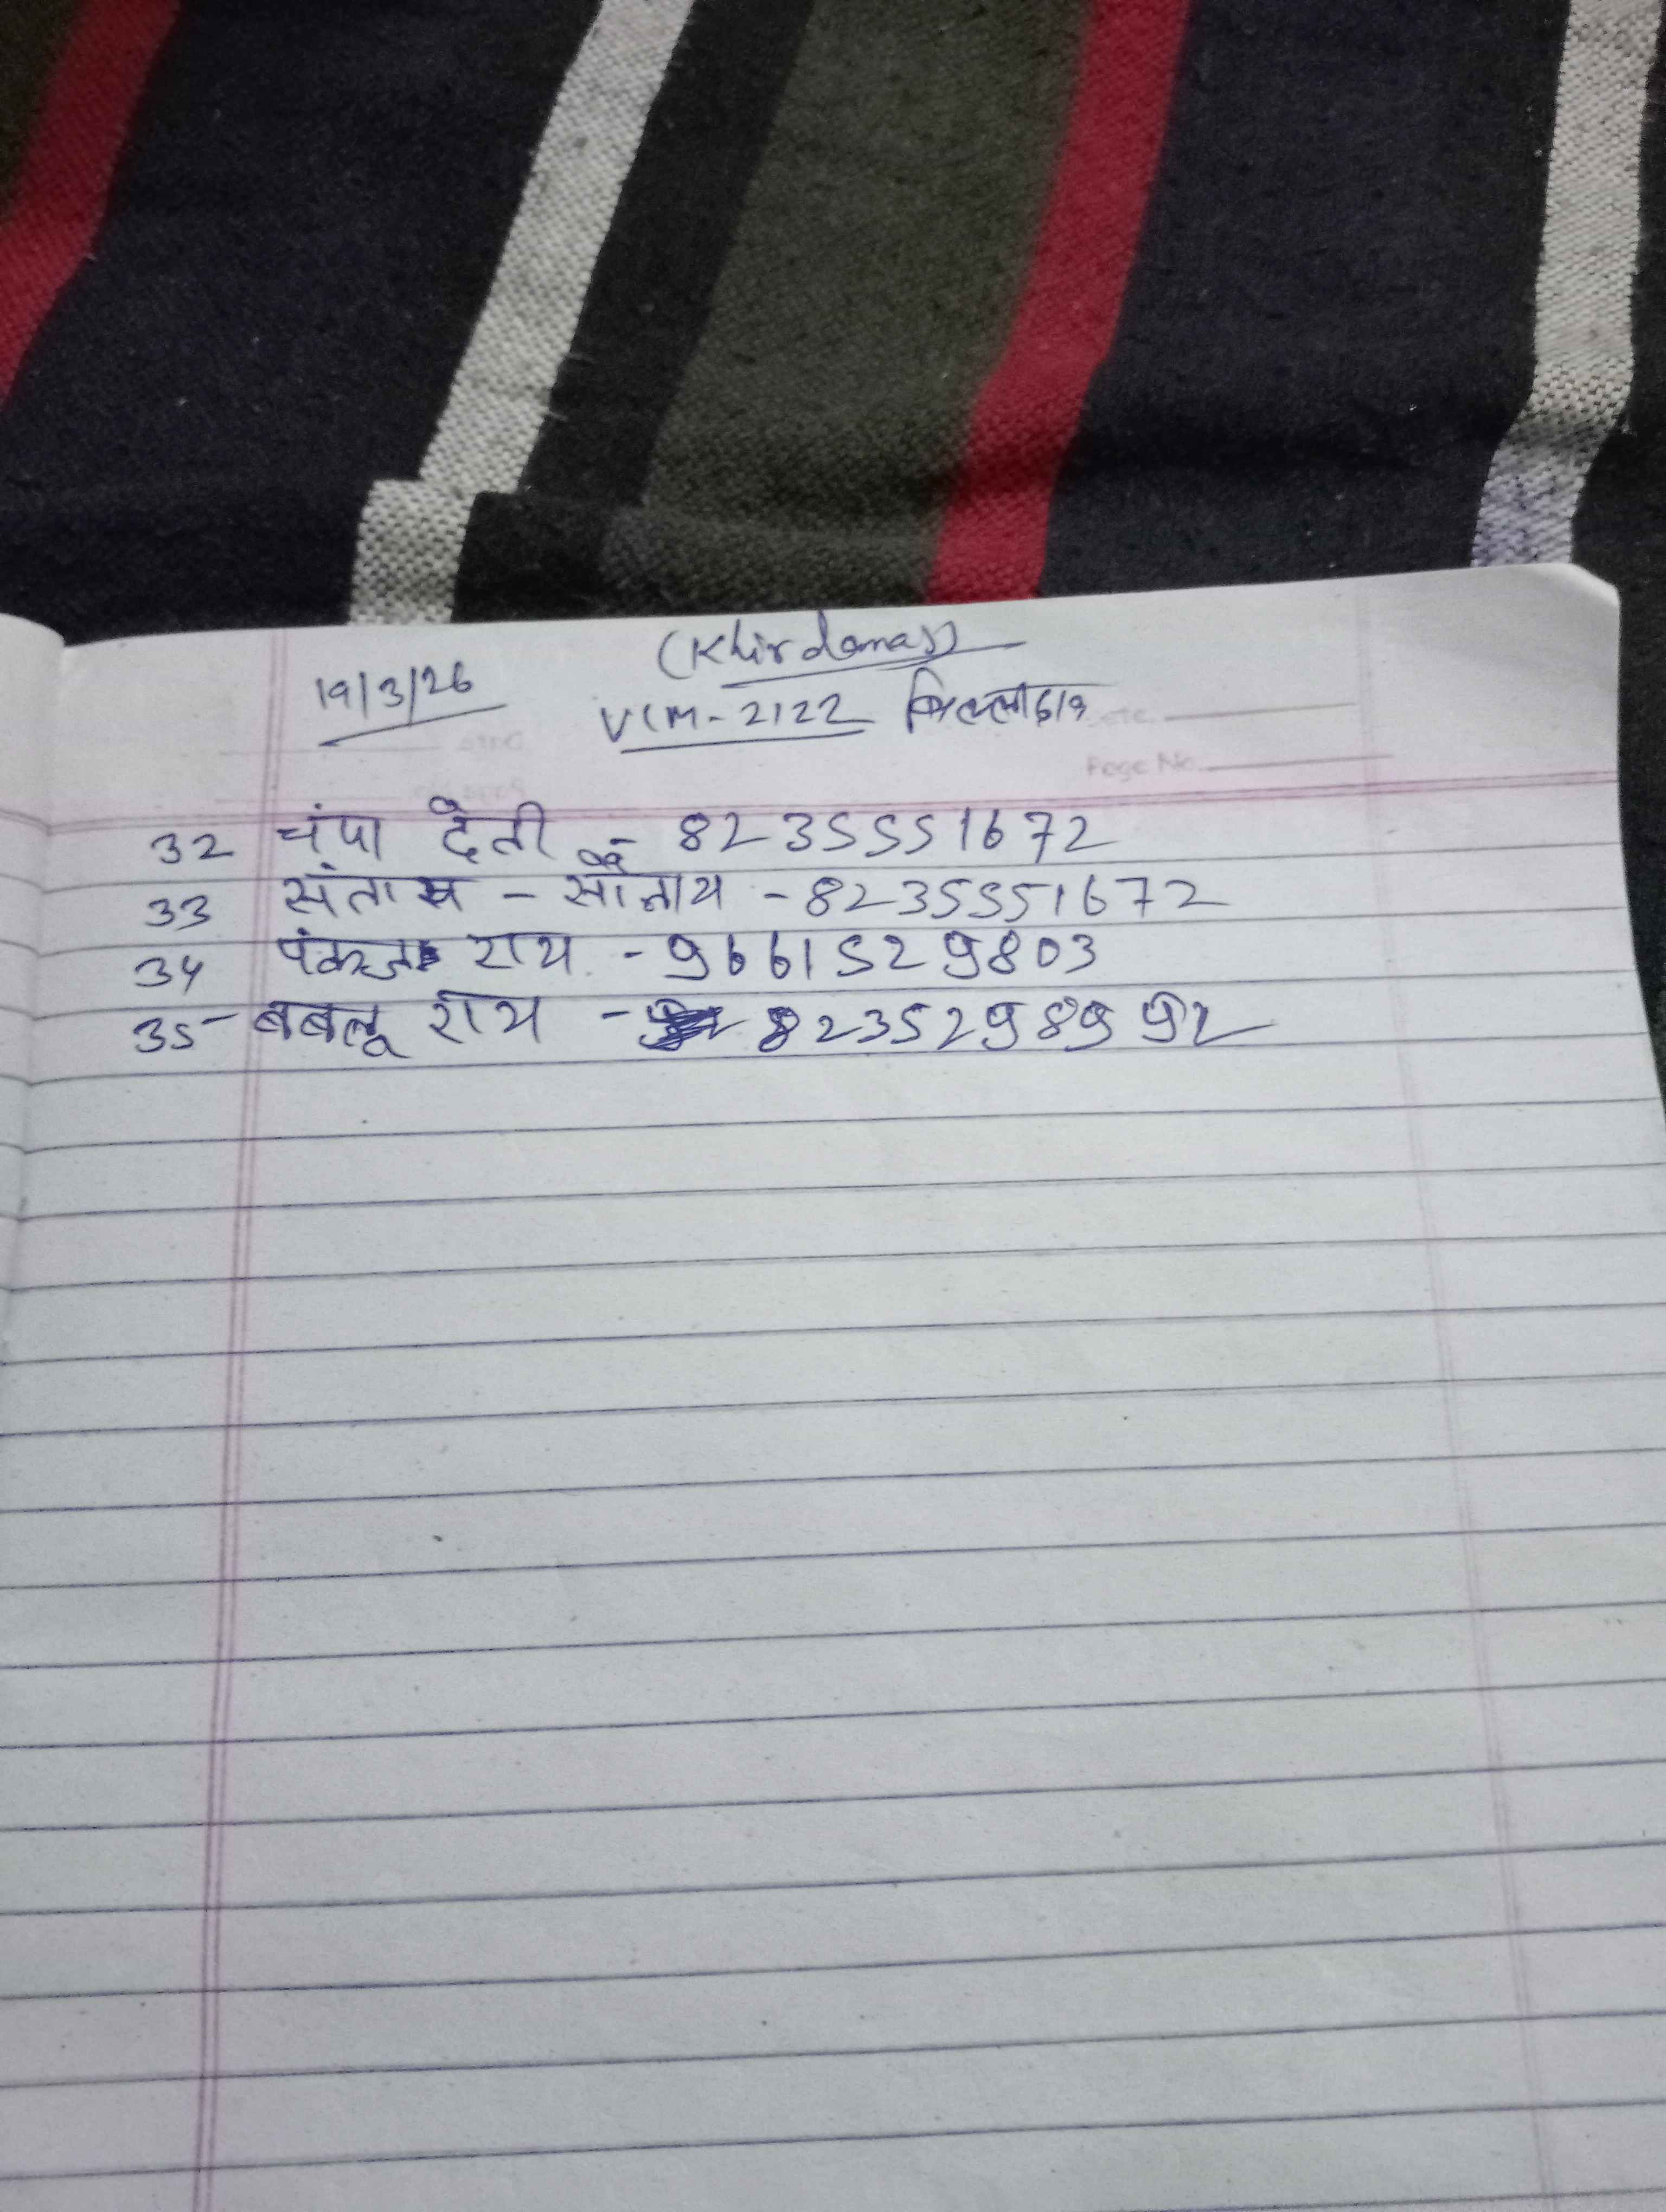 (Khirdanas)
19/3/26 VCM-2122
Page No.
32 चंपा देवी - 8235551672
33 - 8235551672
34 पंकज राय - 9661529803
35 - बबलू राय - 8235298992